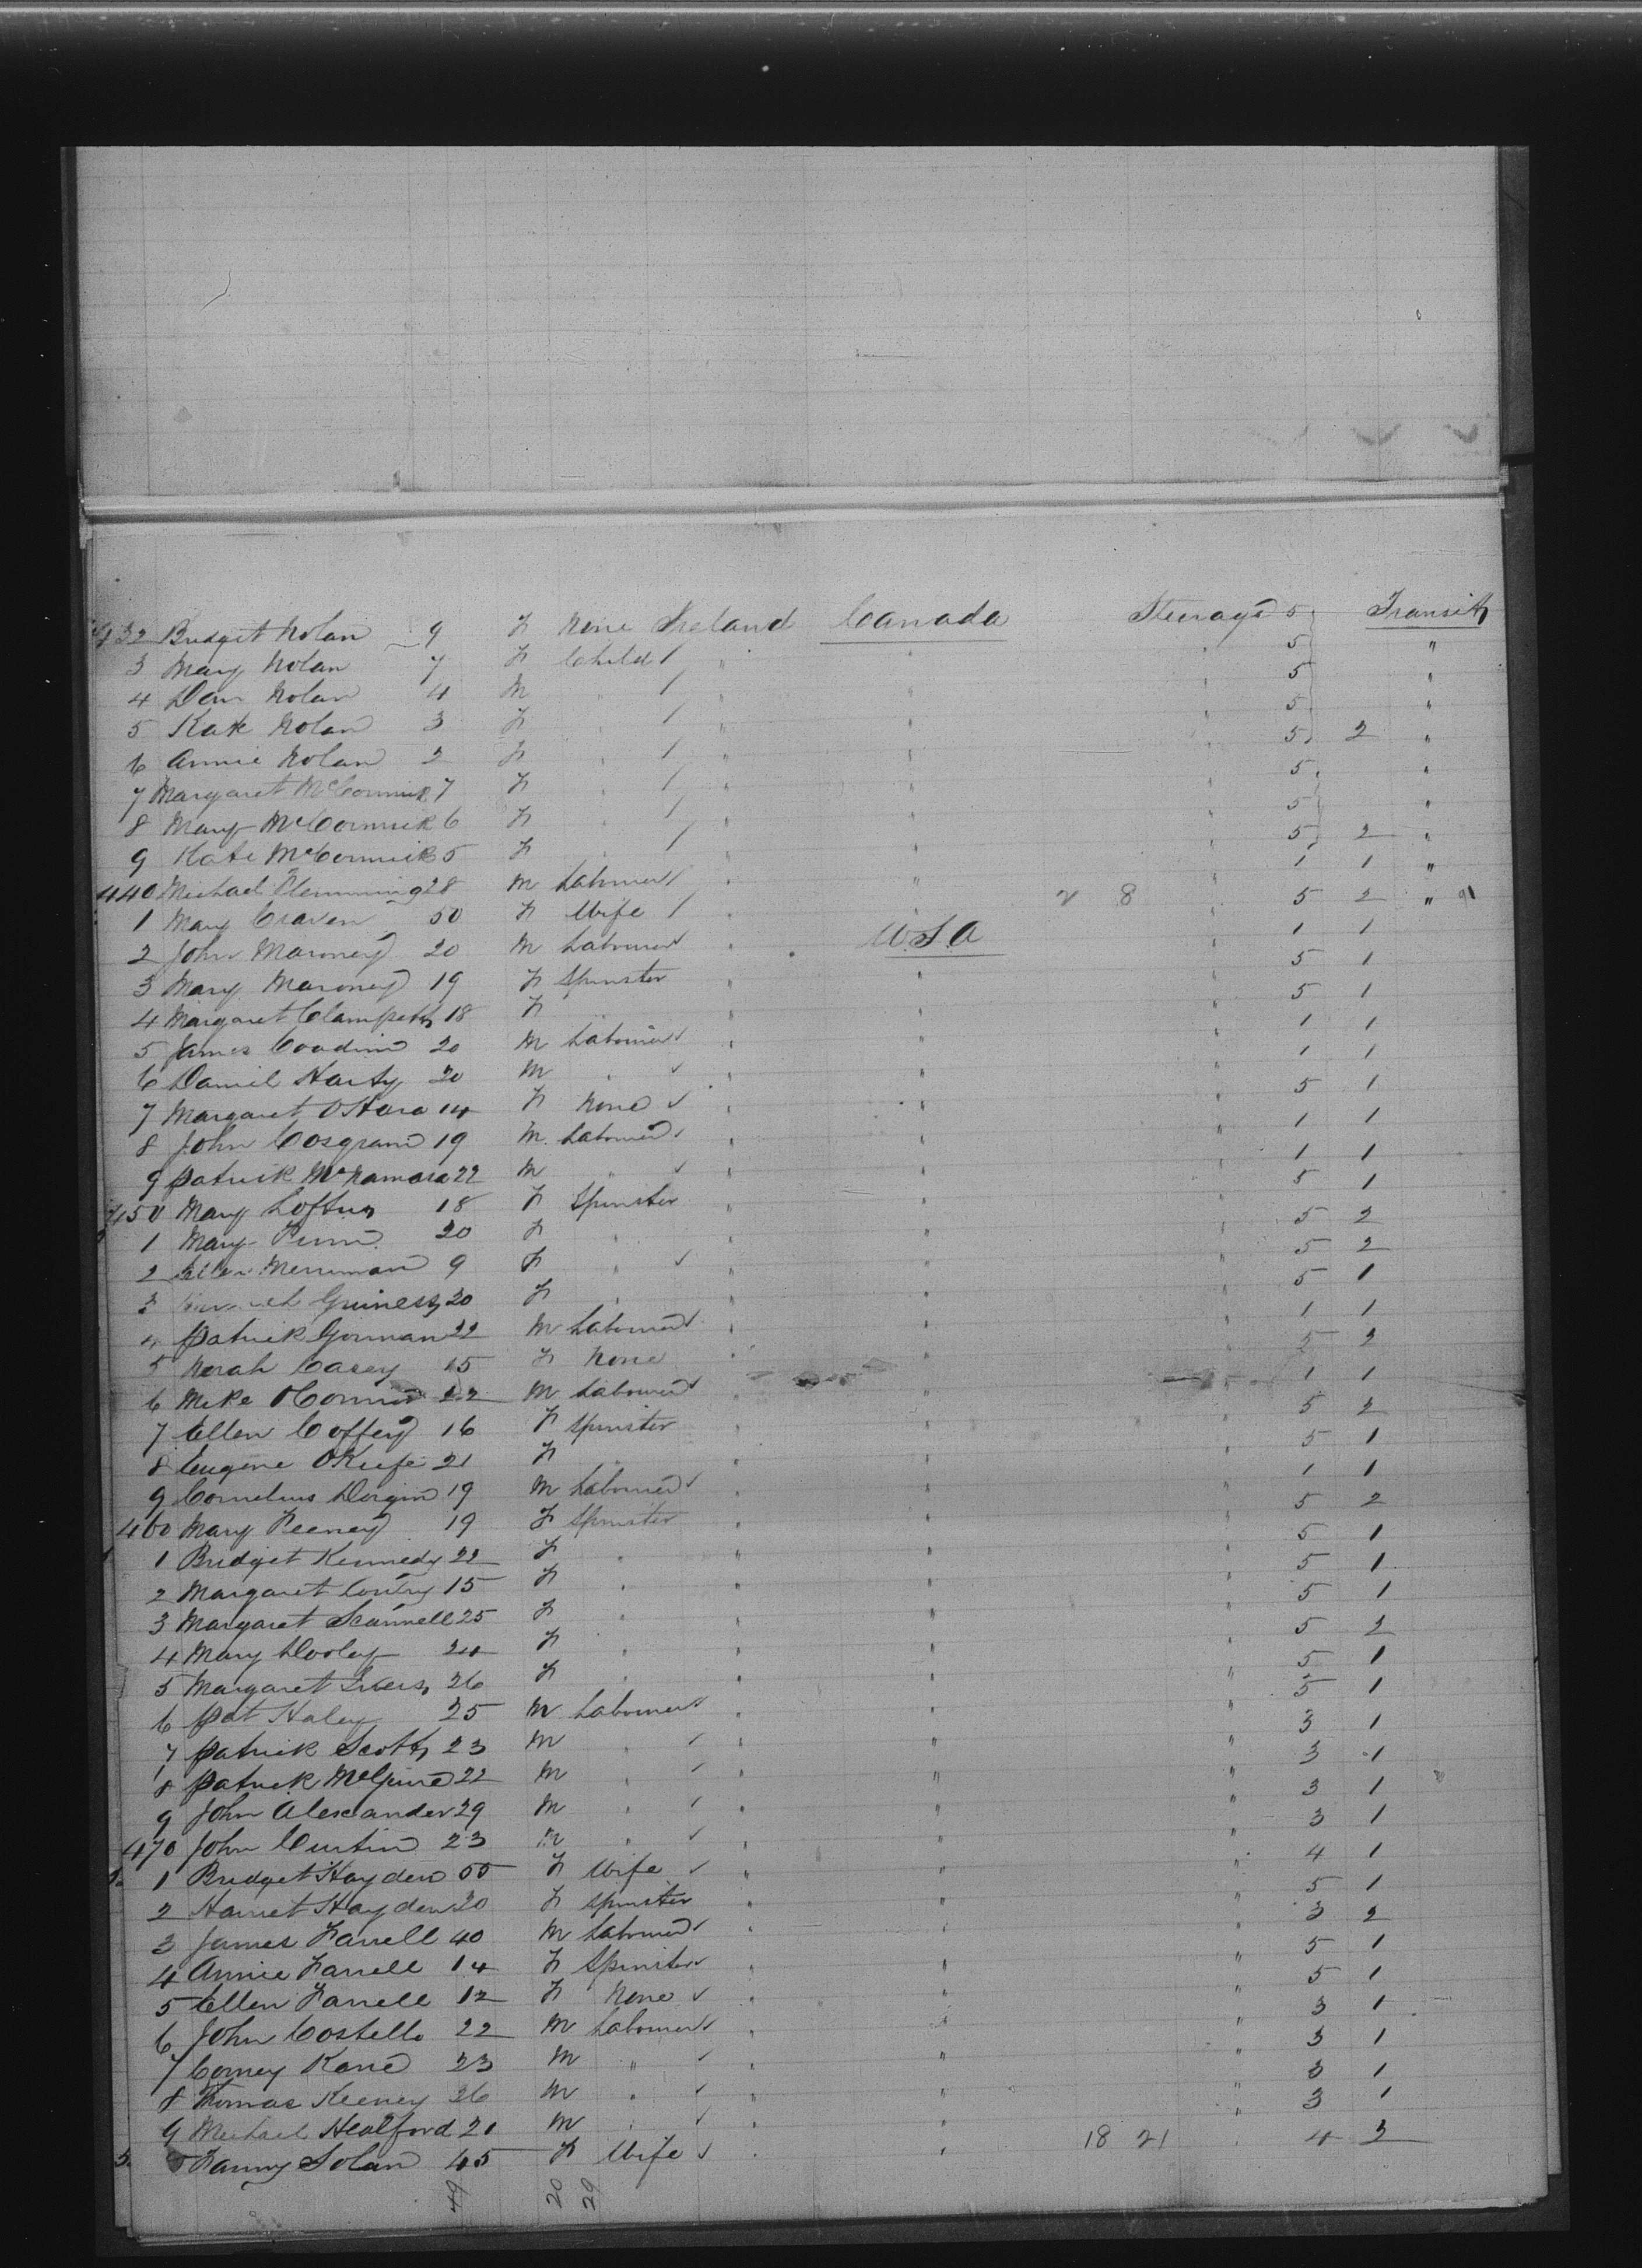 432 Bridget Nolan 9 F None Ireland Canada Steerage 5 Transit
3 Mary Nolan 7 F Child / " " " 5 "
4 Dan Nolan 4 M " / " " " 5 "
5 Kate Nolan 3 F " / " " " 5 "
6 Annie Nolan 2 F " / " " " 5 2 "
7 Margaret McCormick 7 F " / " " " 5 "
8 Mary McCormick 6 F " / " " " 5 "
9 Kate McCormick 5 F " / " " " 5 2 "
440 Michael Flemming 28 M Labourer / " " " 1 1 "
1 Mary Craven 50 F Wife / " " 2 8 " 5 2 "
2 John Maroney 20 M Labourer " U.S.A " 1 1
3 Mary Maroney 19 F Spinster " " " 5 1
4 Margaret 18 F " " " " 5 1
5 James 20 M Labourer " " " 1 1
6 Daniel Harty 20 M " " " " 1 1
7 Margaret OHara 14 F None " " " 5 1
8 John Cosgrave 19 M Labourer " " " 1 1
9 Patrick McNamara 22 M " " " " 1 1
450 Mary Loftus 18 F Spinster " " " 5 1
1 Mary 20 F " " " " 5 2
2 Merriman 9 F " " " " 5 2
3 Guiness 20 F " " " " 5 1
4 Patrick Gorman 22 M Labourer " " " 1 1
5 Norah Casey 15 F None " " " 5 2
6 Mike OConnor 22 M Labourer " " " 1 1
7 Ellen Coffey 16 F Spinster " " " 5 2
8 Eugene OKeefe 21 F " " " " 5 1
9 Cornelius 19 M Labourer " " " 1 1
460 Mary Feeney 19 F Spinster " " " 5 2
1 Bridget Kennedy 22 F " " " " 5 1
2 Margaret 15 F " " " " 5 1
3 Margaret Scannell 25 F " " " " 5 1
4 Mary Dooley F " " " " 5 2
5 Margaret 26 F " " " " 5 1
6 Pat Haley 25 M Labourer " " " 5 1
7 Patrick Scott 23 M " " " " 3 1
8 Patrick McGuire 22 M " " " " 3 1
9 John Alexander 29 M " " " " 3 1
470 John Curtin 23 M " " " " 3 1
1 Bridget Hayden F Wife " " " 4 1
2 Harriet Hayden 20 F Spinster " " " 5 1
3 James Farrell 40 M Labourer " " " 3 2
4 Annie Farrell 14 F Spinster " " " 5 1
5 Ellen Farrell 12 F None " " " 5 1
6 John Costello 22 M Labourer " " " 3 1
7 Corney Kane 23 M " " " " 3 1
8 Thomas Keeney 26 M " " " " 3 1
9 Michael Healford 21 M " " " " 3 1
Fanny Solan 45 F Wife " " 18 21 " 4 3
49 20 29